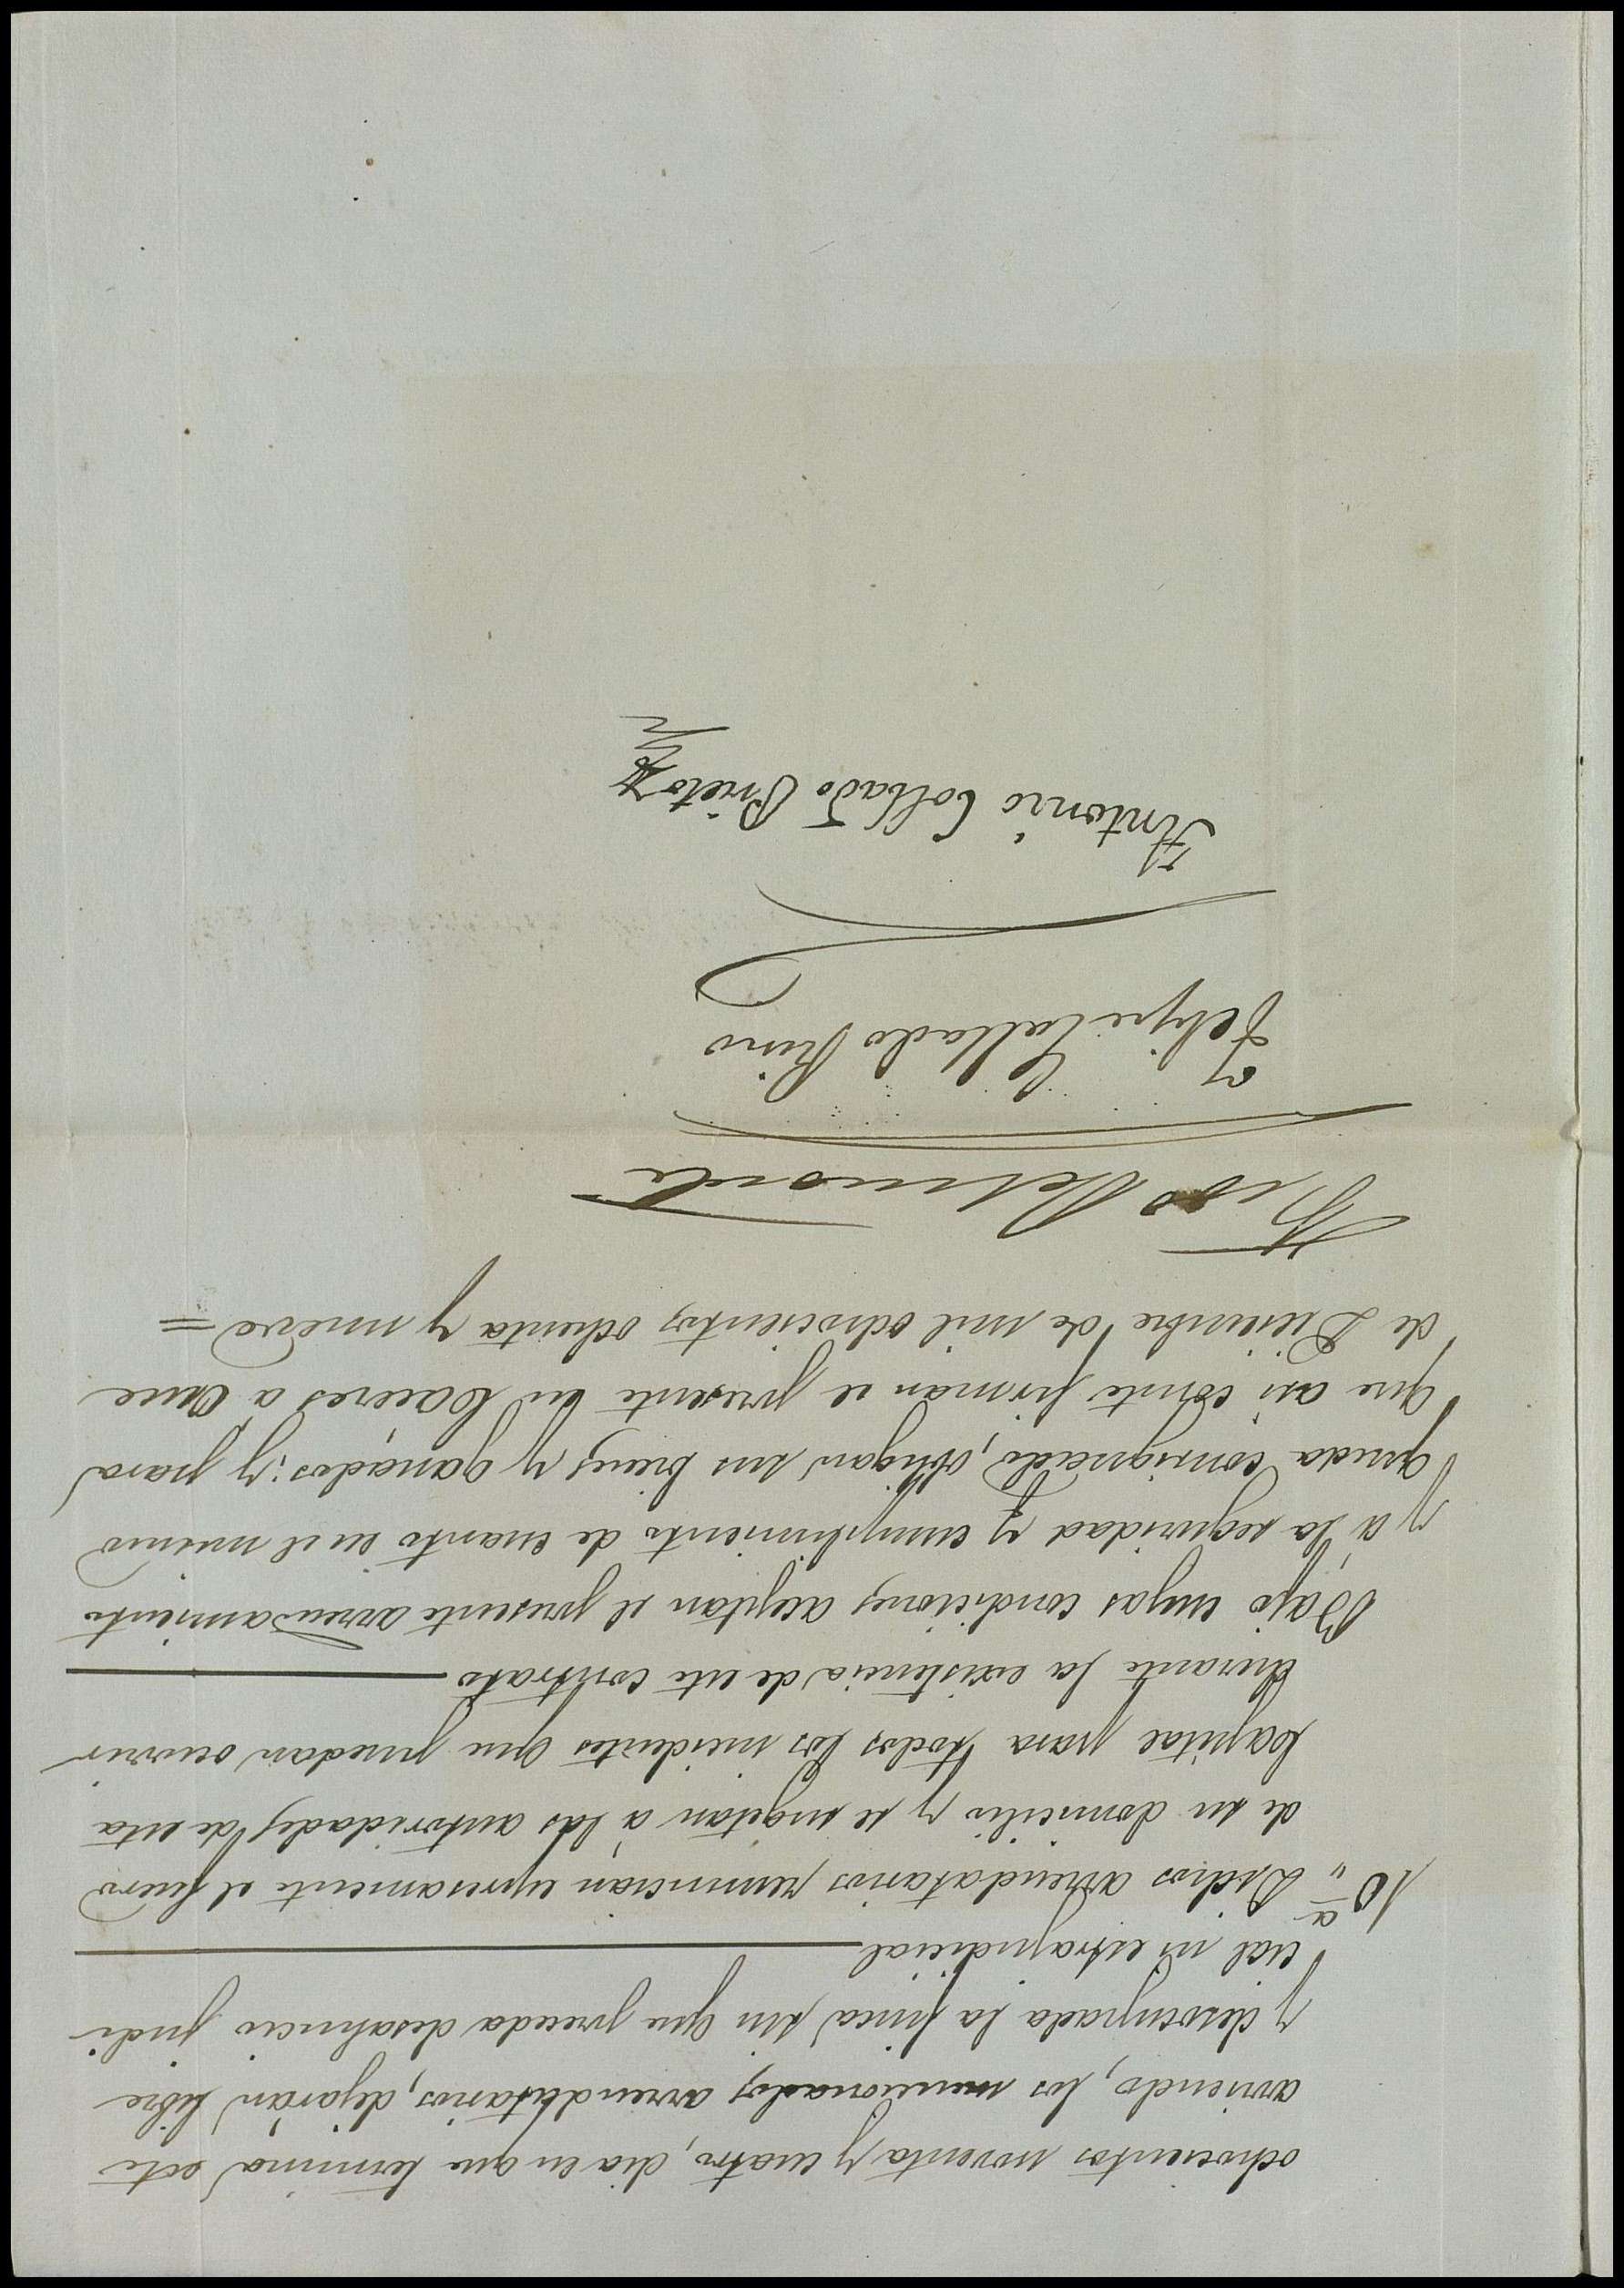 ochocientos noventa y cuatro, dia en que termina este
arriendo, los mencionados arrendatarios, dejarán libre
y desocupada la finca, sin que preceda desahucio judi
cial ni estrajudicial
10ª,, Dichos arrendatarios renuncian expresamente el fuero
de su domicilio y se sugetan á las autoridades de esta
Capital para todos los incidentes que puedan ocurrir
durante la existencia de este contrato
Bajo cuyas condiciones aceptan el presente arrendamiento
y á la seguridad y cumplimiento de cuanto en el mismo
queda consignado, obligan sus bienes y ganados: y para
que asi conste firman el presente en Caceres á Once
de Diciembre de mil ochocientos ochenta y nueve =
Felipe Collado Pino
Antonio Collado Prieto